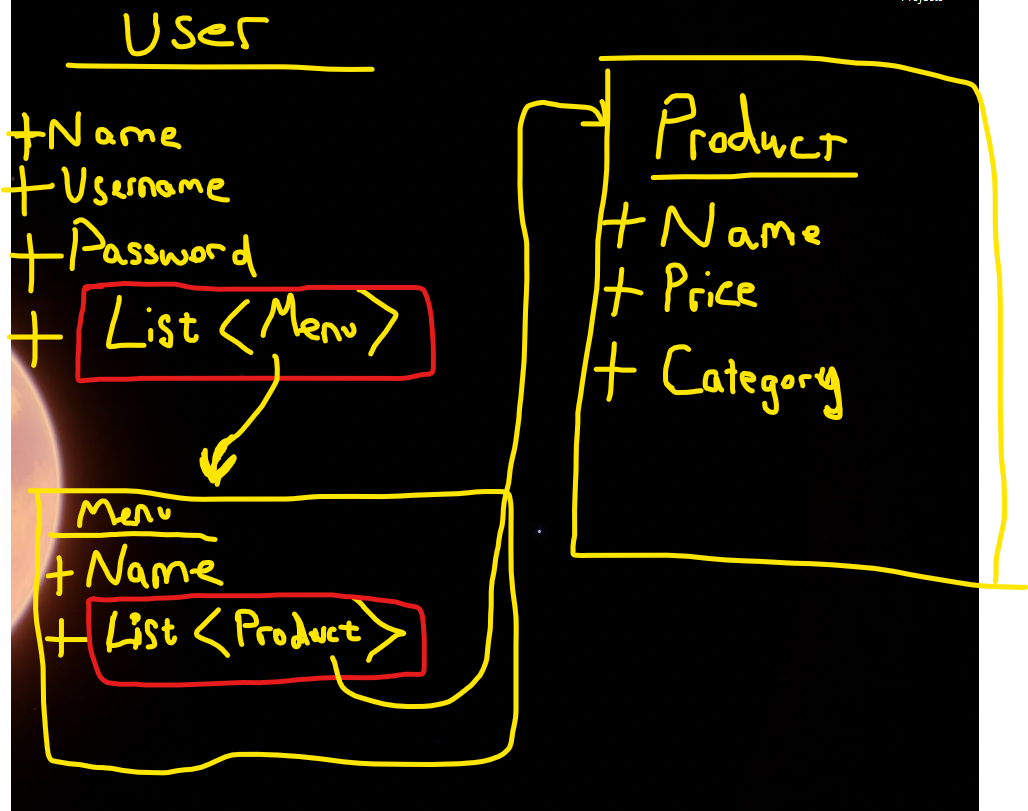 User
+ Name
+ Username
+ Password
+ List <Menu>
Menu
+ Name
+ List <Product>
Product
+ Name
+ Price
+ Category